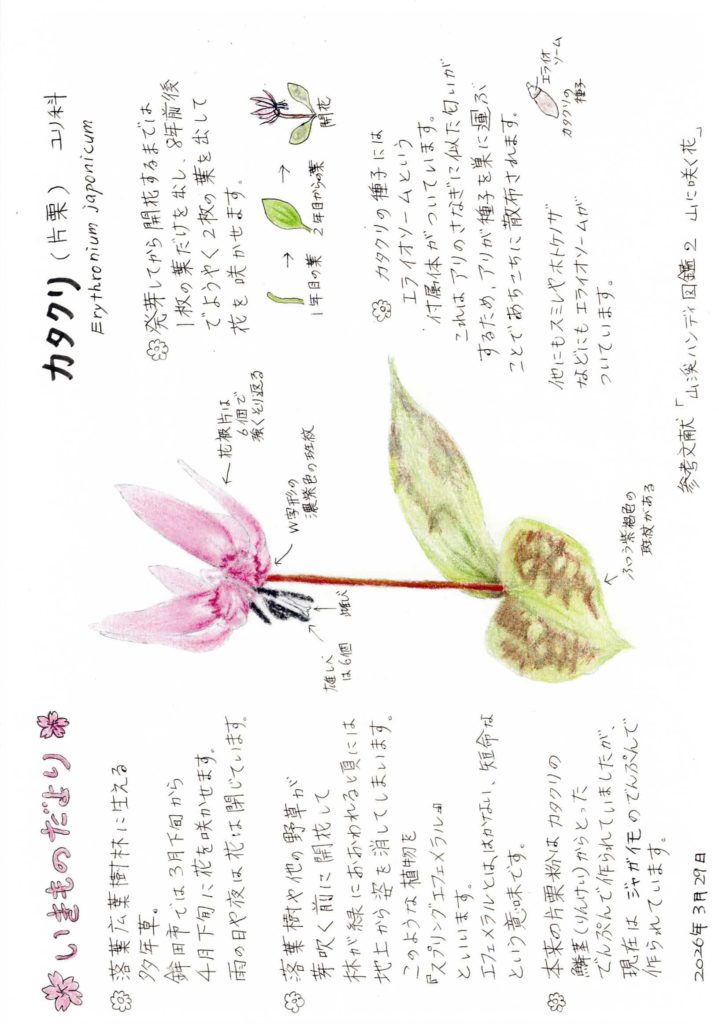 いきものだより
カタクリ(片栗) ユリ科
Erythronium japonicum
落葉広葉樹林に生える
多年草。
鉾田市では3月下旬から
4月下旬に花を咲かせます。
雨の日や夜は花は閉じています。
落葉樹や他の野草が
芽吹く前に開花して
林が緑におおわれる頃には
地上から姿を消してしまいます。
このような植物を
『スプリングエフェメラル』
といいます。
エフェメラルとは、はかない、短命な
という意味です。
本来の片栗粉はカタクリの
鱗茎(りんけい)からとった
でんぷんで作られていましたが、
現在はジャガイモのでんぷんで
作られています。
2026年3月29日
花被片は
6個で
強くそり返る
W字形の
濃紫色の斑紋
雄しべ
は6個
雌しべ
ふつう紫褐色の
斑紋がある
発芽してから開花するまでは
1枚の葉だけを出し、8年前後
でようやく2枚の葉を出して
花を咲かせます。
1年目の葉
→
2年目からの葉
→
開花
カタクリの種子には
エライオソームという
付属体がついています。
これはアリのさなぎに似た匂いが
するため、アリが種子を巣に運ぶ
ことであちこちに散布されます。
他にもスミレやホトケノザ
などにもエライオソームが
ついています。
エライオ
ソーム
カタクリの
種子
参考文献「山渓ハンディ図鑑2 山に咲く花」